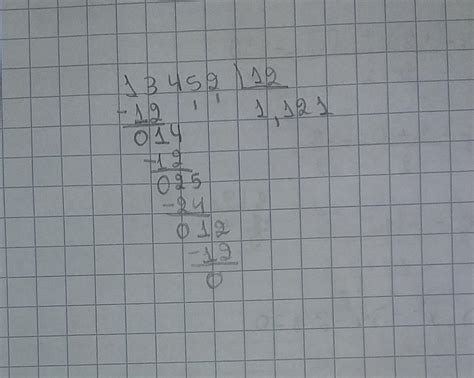 13452 12
-12 1,121
014
-12
025
-24
012
-12
0